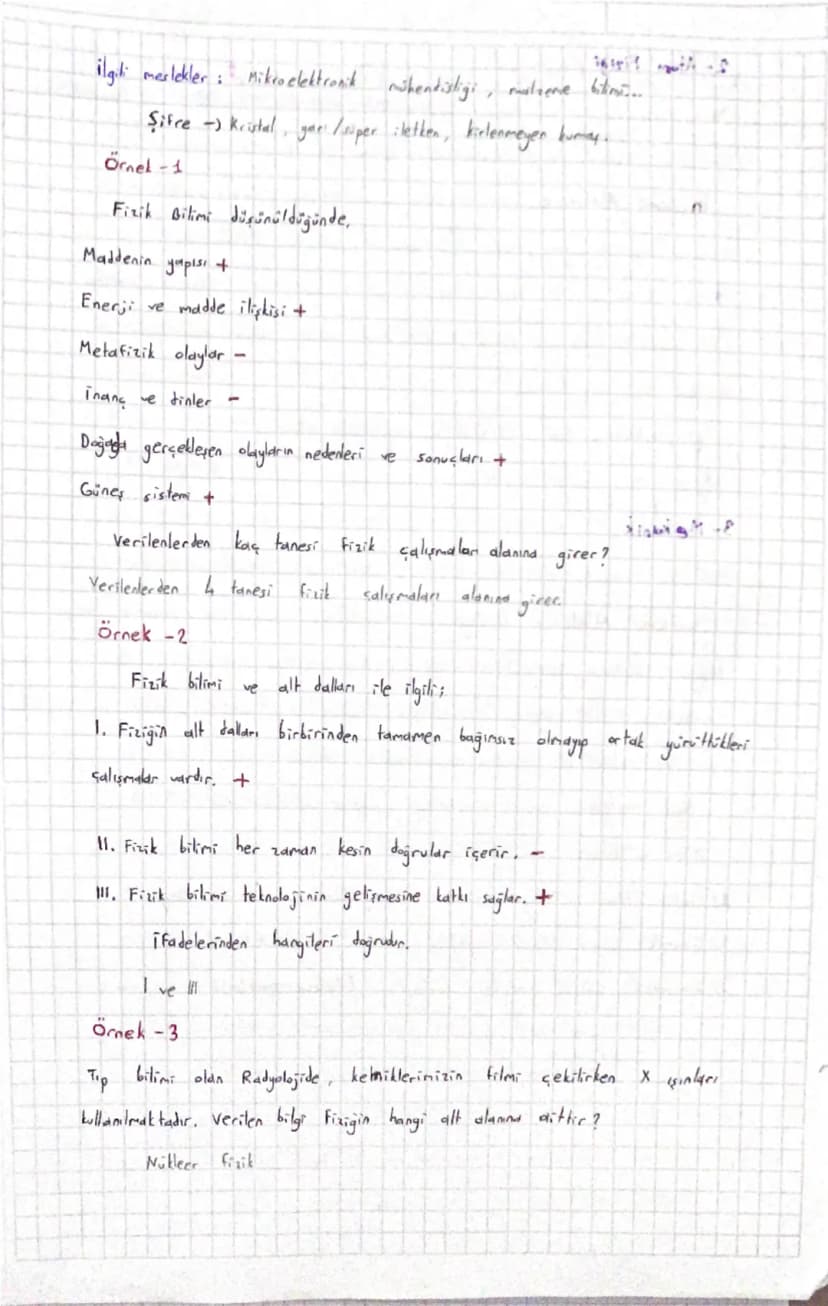 ilgili meslekler : Mikroelektronik mühendisliği, malzeme bilimi...
Şifre -> Kristal, yarı/süper iletken, kirlenmeyen kumaş.
Örnek -1
Fizik Bilimi düşünüldüğünde,
Maddenin yapısı +
Enerji ve madde ilişkisi +
Metafizik olaylar -
İnanç ve dinler -
Doğada gerçekleşen olayların nedenleri ve sonuçları +
Güneş sistemi +
Verilenlerden kaç tanesi fizik çalışmaları alanına girer?
Verilenlerden 4 tanesi fizik çalışmaları alanına girer.
Örnek -2
Fizik bilimi ve alt dalları ile ilgili;
I. Fiziğin alt dalları birbirinden tamamen bağımsız olmayıp ortak yürüttükleri
çalışmalar vardır. +
II. Fizik bilimi her zaman kesin doğrular içerir. -
III. Fizik bilimi teknolojinin gelişmesine katkı sağlar. +
ifadelerinden hangileri doğrudur.
I ve III
Örnek -3
Tıp bilimi olan Radyolojide, kemiklerimizin filmi çekilirken X ışınları
kullanılmaktadır. Verilen bilgi Fiziğin hangi alt alanına aittir?
Nükleer fizik